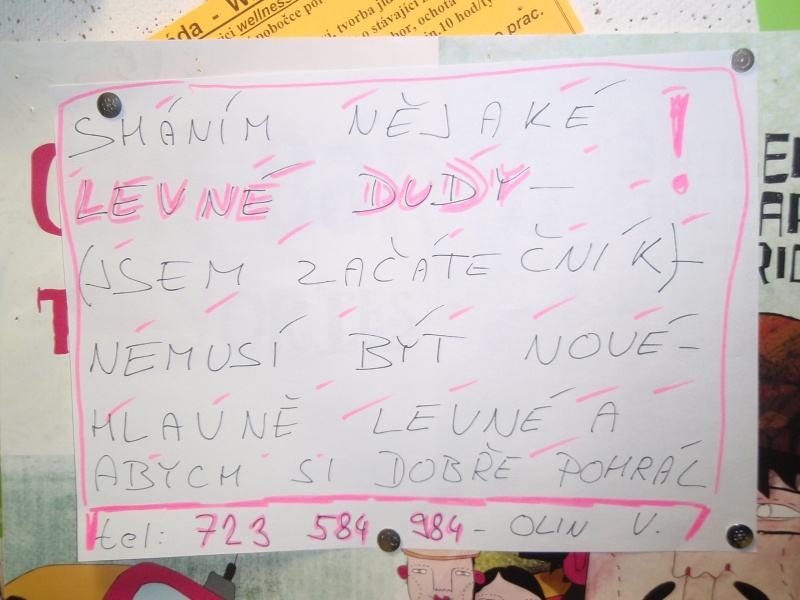 da - W
jící wellness
pobočce por
, tvorba jíd
o stávající
bor, ochota
in.10 hod/ty
o prac.
SHÁNÍM NĚJAKÉ !
LEVNÉ DUDY-
(JSEM ZAČÁTEČNÍK)-
NEMUSÍ BÝT NOVÉ-
HLAVNĚ LEVNÉ A
ABYCH SI DOBŘE POHRÁL
tel: 723 584 984- OLIN V.